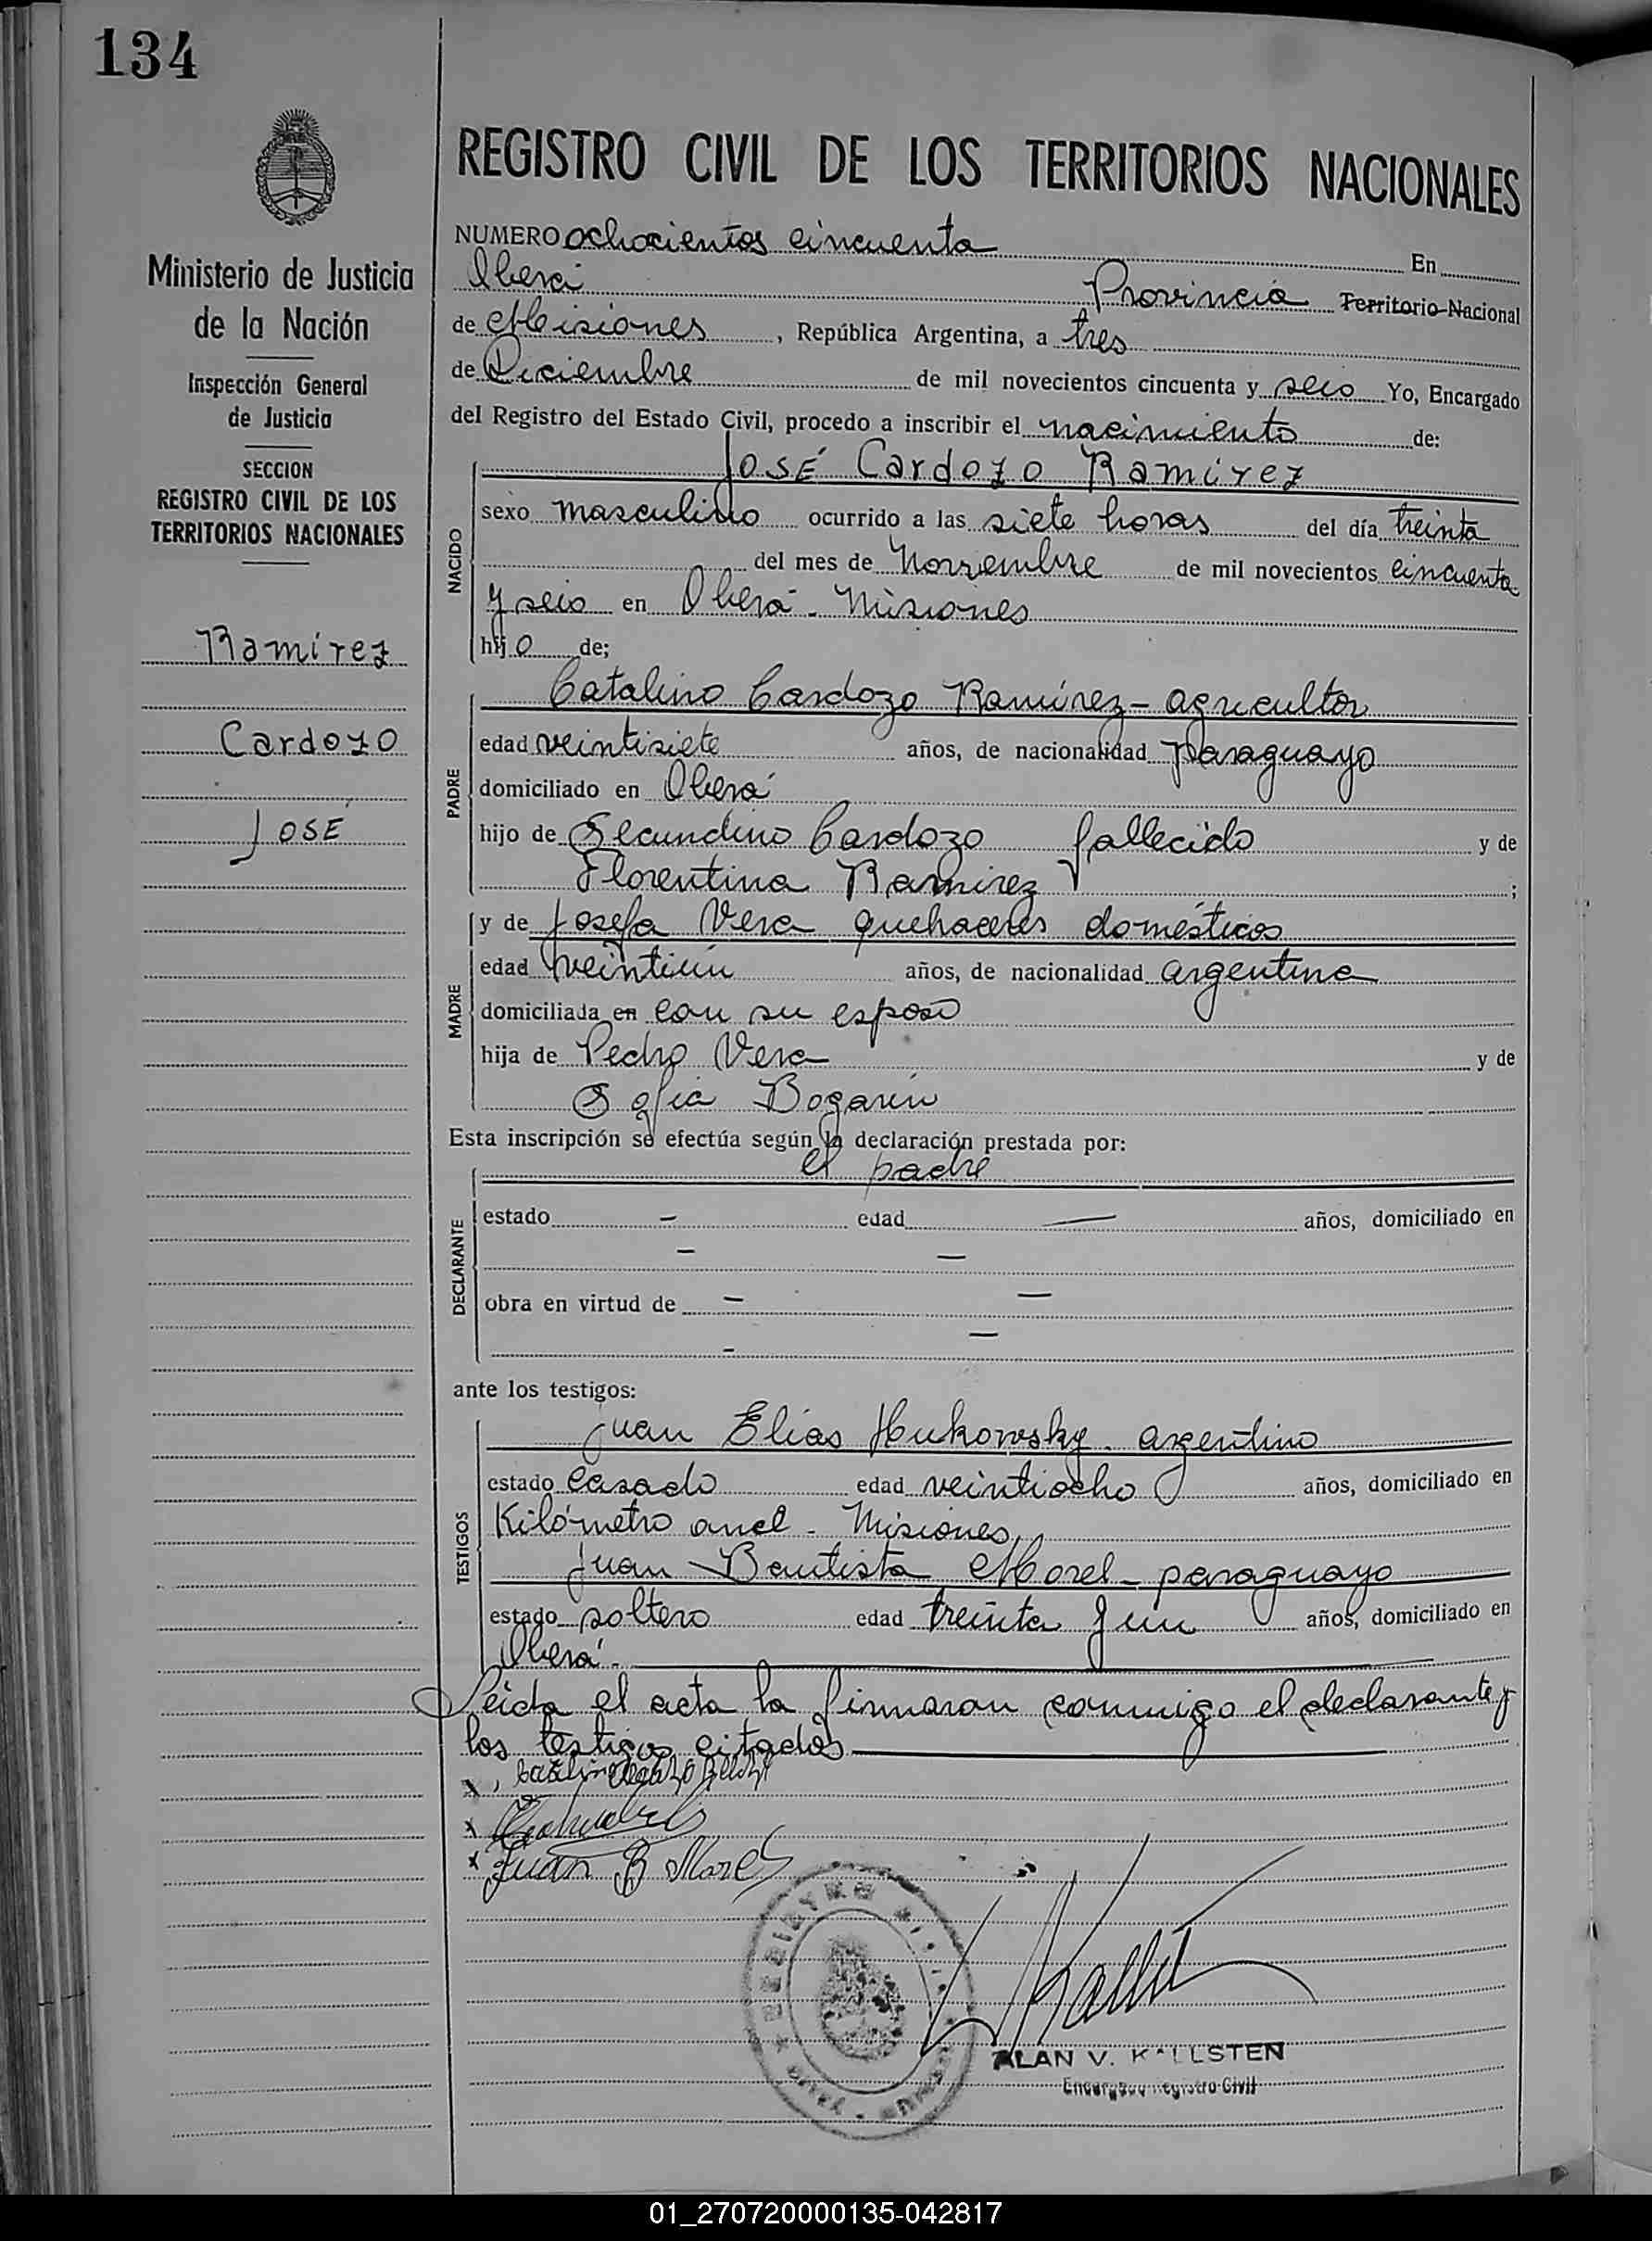 134
REGISTRO CIVIL DE LOS TERRITORIOS NACIONALES
Ministerio de Justicia
de la Nación
Inspección General
de Justicia
SECCION
REGISTRO CIVIL DE LOS
TERRITORIOS NACIONALES
Ramírez
Cardozo
José
NUMERO ochocientos cincuenta En
Oberá Provincia Territorio Nacional
de Misiones, República Argentina, a tres
de Diciembre de mil novecientos cincuenta y seis Yo, Encargado
del Registro del Estado Civil, procedo a inscribir el nacimiento de:
NACIDO
José Cardozo Ramírez
sexo masculino ocurrido a las siete horas del día treinta
del mes de Noviembre de mil novecientos cincuenta
y seis en Oberá - Misiones
hijo de;
PADRE
Catalino Cardozo Ramírez - agricultor
edad veintisiete años, de nacionalidad Paraguayo
domiciliado en Oberá
hijo de Secundino Cardozo fallecido y de
Florentina Ramirez ;
MADRE
y de Josefa Vera quehaceres domésticos
edad veintiún años, de nacionalidad argentina
domiciliada en con su esposo
hija de Pedro Vera y de
Sofia Bogarín
Esta inscripción se efectúa según la declaración prestada por:
DECLARANTE
el padre
estado — edad — años, domiciliado en
— —
obra en virtud de — —
— —
ante los testigos:
TESTIGOS
Juan Elías Hukowsky. argentino
estado casado edad veintiocho años, domiciliado en
Kilómetro - Misiones
Juan Bautista Morel - paraguayo
estado soltero edad treinta y un años, domiciliado en
Oberá.
Leida el acta la firmaron conmigo el declarante y
los testigos citados
x
x
x Juan B Morel
ALAN V. KALLSTEN
Encargado Registro Civil
01_270720000135-042817